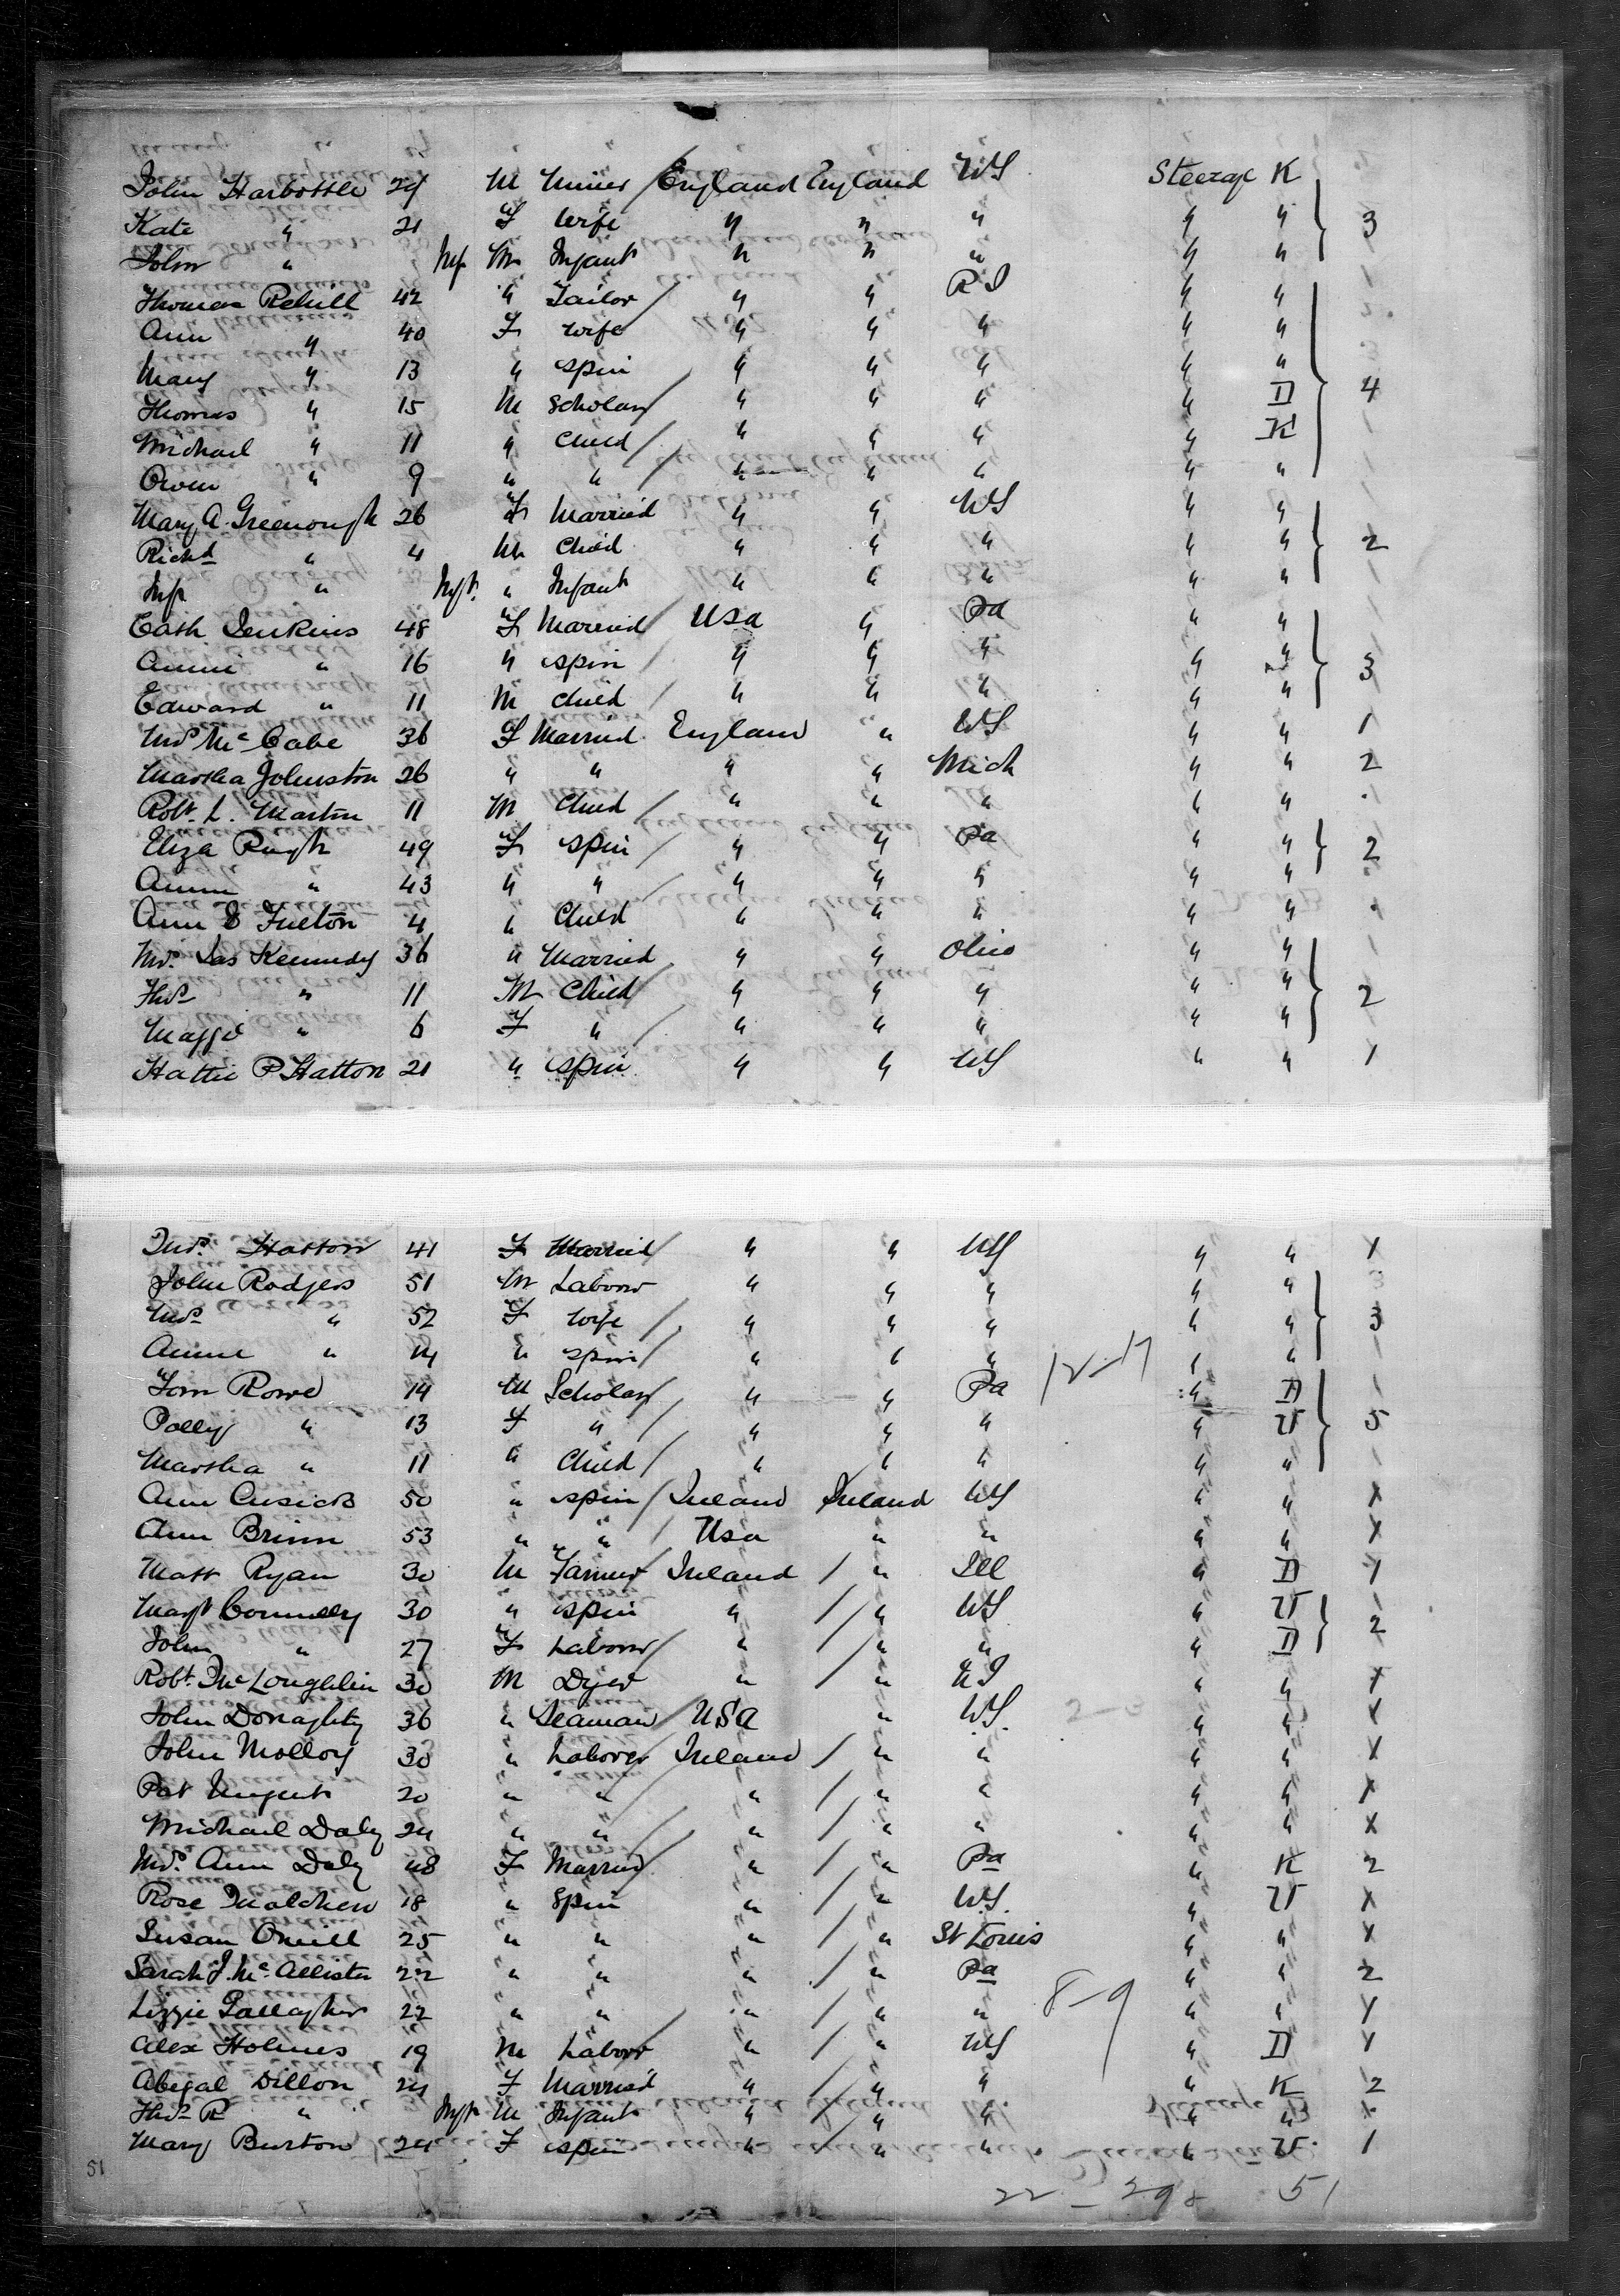 John Harbottle 29 M Miner / England England NY Steerage K
Kate " 21 F Wife " " " " " 3
John " Inf M Infant " " " " "
Thomas Rehill 42 " Tailor / " " R I " "
Ann " 40 F Wife / " " " " "
Mary " 13 " Spin " " " " " 4
Thomas " 15 M Scholar / " " " "
Michael " 11 " Child / " " " " K
Owen " 9 " " / " " " " "
Mary A. Greenough 26 F Married " " NY " "
Richd " 4 M Child " " " " " 2
Inf " Inft. " Infant " " " " "
Cath Jenkins 48 F Married / USA " Pa " "
Annie " 16 " Spin / " " " " " 3
Edward " 11 M Child / " " " " "
Mrs McCabe 36 F Married England " NY " " 1
Martha Johnston 26 " " " " Mich " " 2
Robt. L. Martin 11 M Child / " " " " "
Eliza Pugh 49 F Spin / " " Pa " " 2
Annie " 43 " " / " " " " "
Ann E Fulton 4 " Child " " " " "
Mrs. Jas Kennedy 36 " Married " " Ohio " "
Thos " 11 M Child / " " " " " 2
Maggie " 6 F " / " " " " "
Hattie P Hatton 21 " Spin " " NY " " 1
Mrs. Hatton 41 F Married / " " NY " " 1
John Rodgers 51 M Labour " " " " "
Mrs " 52 F Wife / " " " " " 3
Annie " 14 " Spin / " " " " "
Tom Rowe 14 M Scholar / " " Pa 12-17 "
Polly " 13 F " / " " " " 5
Martha " 11 " Child / " " " " "
Ann Cusick 50 " Spin / Ireland Ireland NY " " 1
Ann Brinn 53 " " / Usa " " " " 1
Matt Ryan 30 M Farmer / Ireland / " Ill " 1
Margt Connelly 30 " Spin " / " NY " 2
John " 27 F Labour / " / " " "
Robt. McLoughlin 30 M Dyer " / " " " 1
John Donaghty 36 " Seaman / USA " NY " " 1
John Molloy 30 " Laborer / Ireland / " " " " 1
Pat Nugent 20 " " / " / " " " " 1
Michael Daly 24 " " / " / " " " " 1
Mrs. Ann Daly 48 F Married / " / " Pa " K 2
Rose 18 " Spin " / " NY " 1
Susan Oneill 25 " " " / " St Louis " " 1
Sarah J. McAllister 22 " " " / " Pa " " 2
Lizzie Gallagher 22 " " / " / " " 8-9 " " 1
Alex Holmes 19 M Labour / " / " NY " 1
Abigal Dillon 24 F Married " / " " " K 2
Thos R " Inft M Infant " / " " " "
Mary Burton 24 F Spin " / " " " 1
51
22 - 29 51